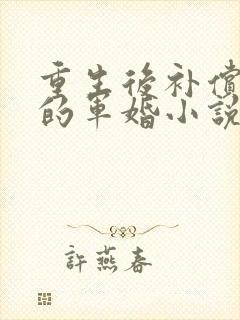 重生後补償
的軍婚小說
許燕春